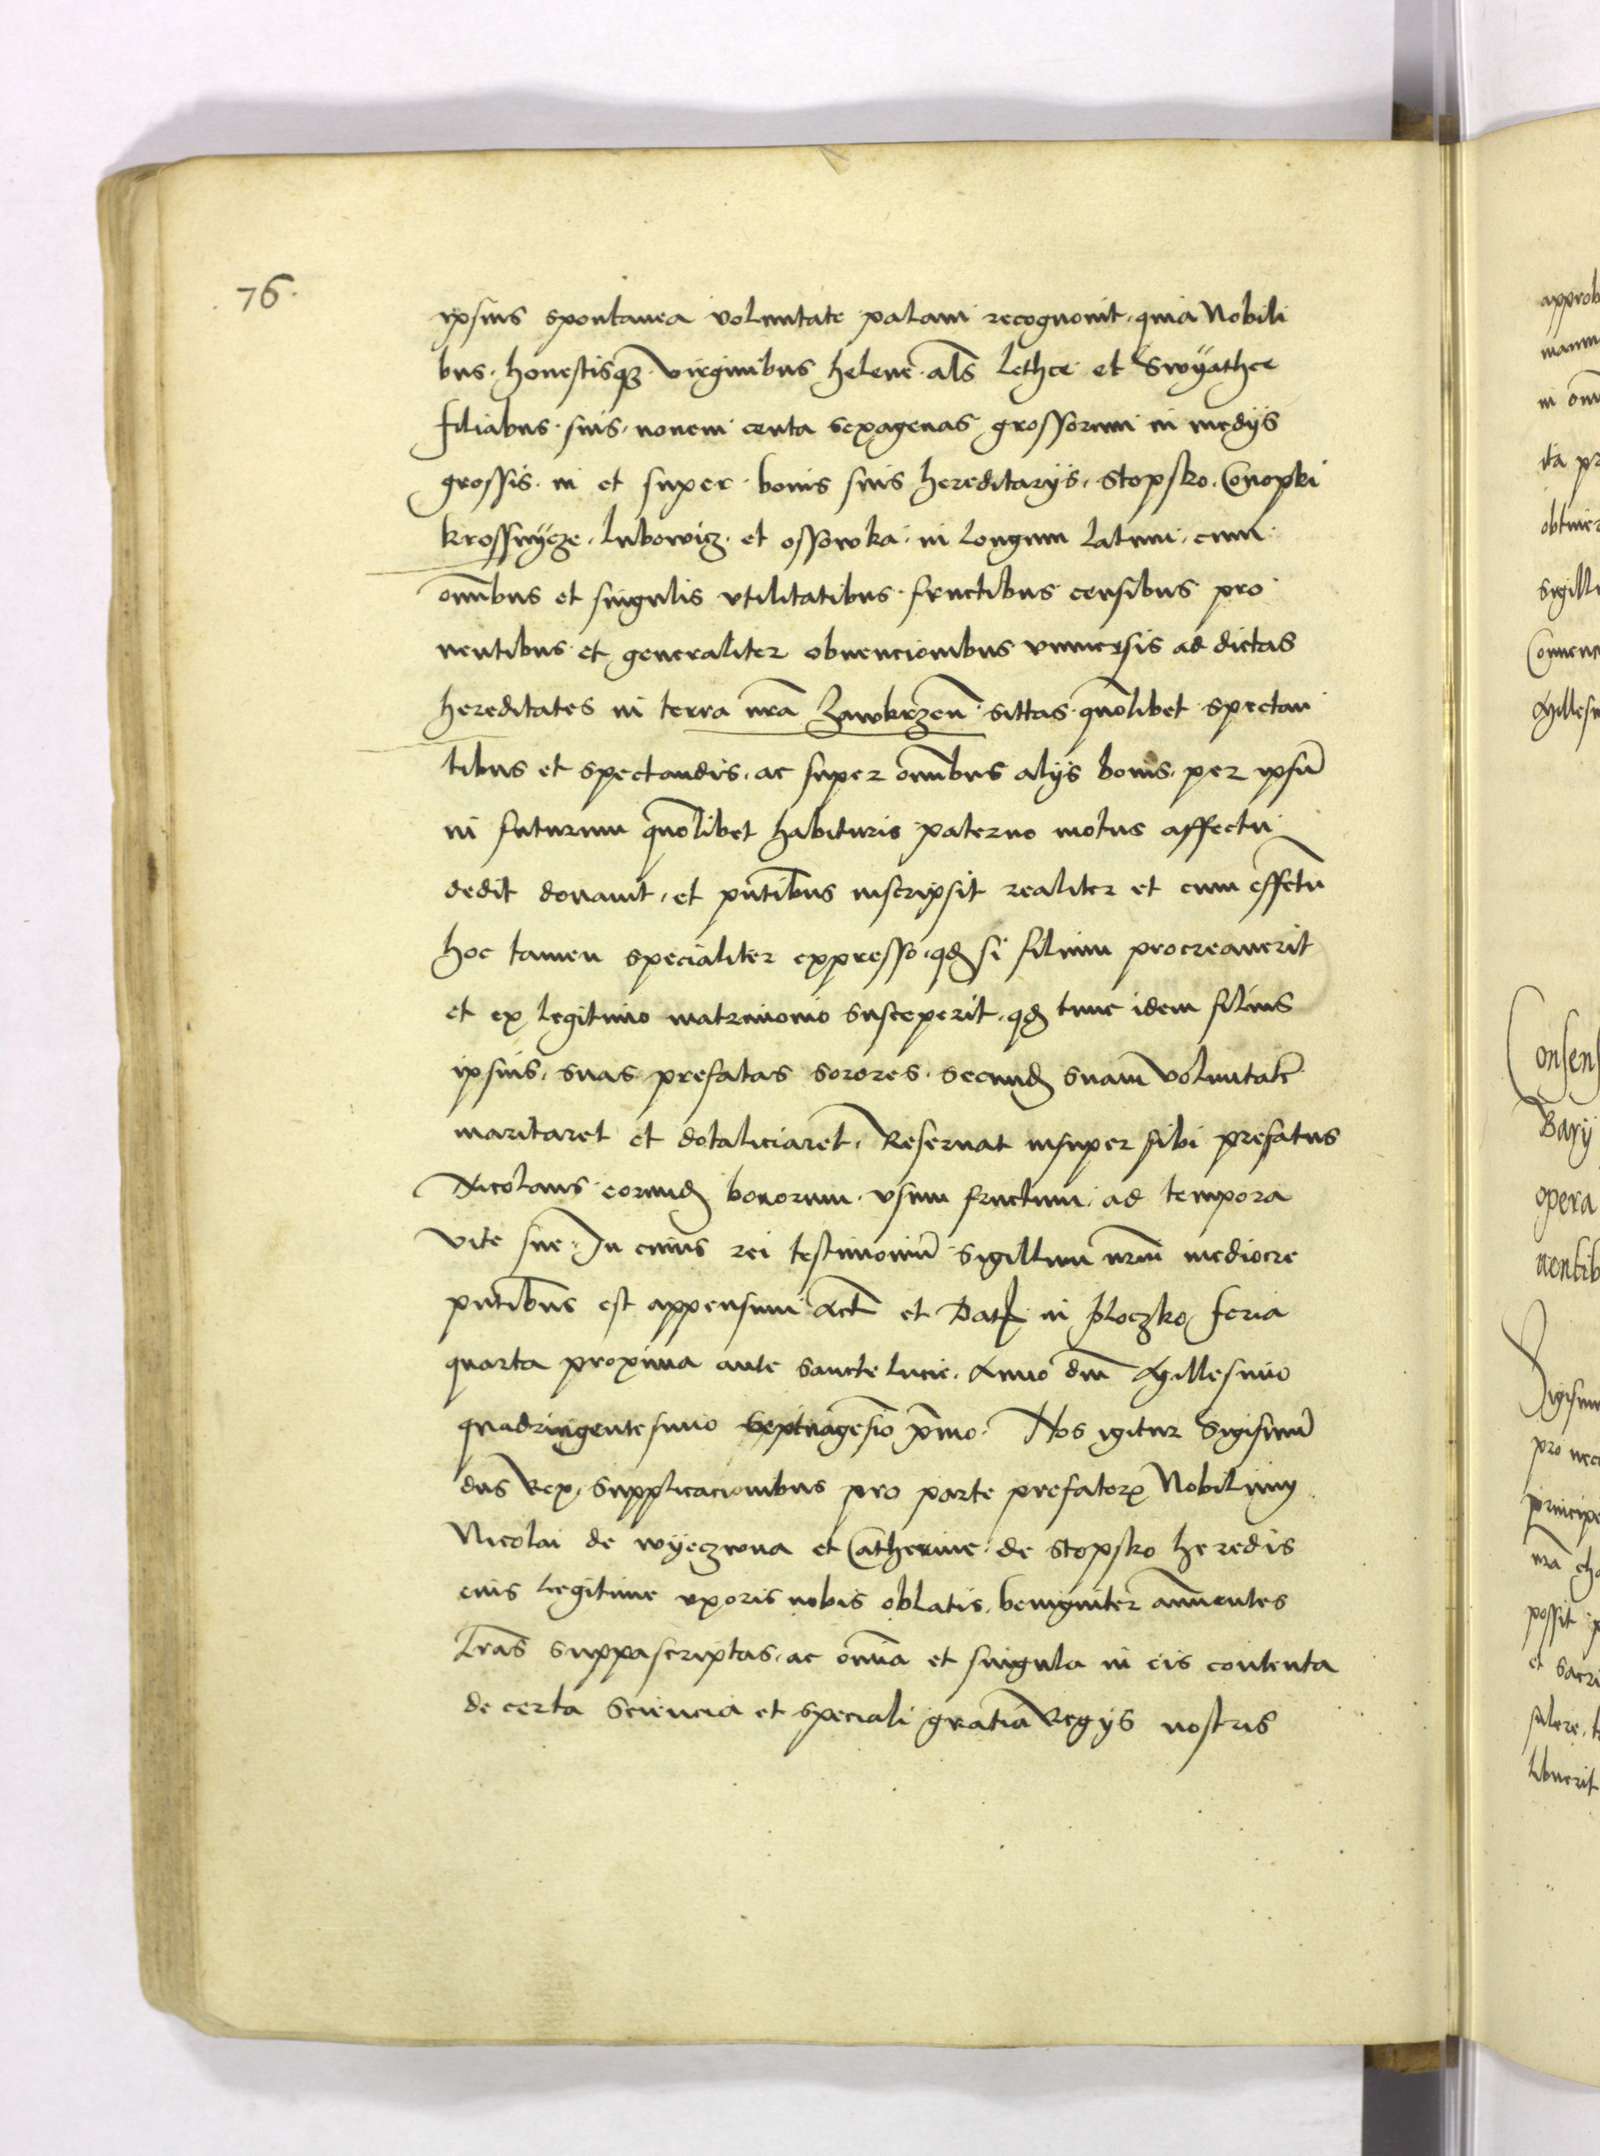 76.
ipsius spontanea voluntate palam recognovit. quia Nobili
bus. honestisqз virginibus helene. als lethce et Swÿathce
filiabus suis. novem centa sexagenas grossorum in medÿs
grossis. in et super bonis suis hereditarÿs. Stopsko. Conopki
krossnÿcze. lubowicz. et ossowka. in longum latum. cum
omibus et singulis vtilitatibus fructibus censibus pro
uentibus et generaliter obuencionibus vniuersis ad dictas
hereditates in terra nra Zawkrzen sittas quolibet spectan
tibus et spectandis. ac super omibus alÿs bonis. per ipsu
in futurum quolibet habituris paterno motus affectu
dedit donauit. et pntibus inscripsit realiter et cum effectu
hoc tamen specialiter expresso. qd si filium procreauerit
et ex legitimo matrimonio susceperit. qd tunc idem filius
ipsius. suas prefatas sorores. secund suam voluntate
maritaret et dotaliciaret. Reseruat insuper sibi prefatus
Nicolaus eorund bonorum. vsum fructum. ad tempora
vite sue. In cuius rei testimoniu Sigillum nrm mediocre
pntibus est appensum Act et Dat in ploczko feria
quarta proxima ante sancte lucie. Anno dm Millesimo
quadringentesimo septuagesio pmo. Nos igitur Sigismu
dus Rex. Supplicacionibus pro parte prefator Nobilium
Nicolai de wÿeczwna et Catherine. de Stopsko heredis
eius legitime vxoris nobis oblatis. benigniter annuentes
lras suppascriptas. ac omia et singula in eis contenta
de certa sciencia et speciali gratia Regÿs nostris
approb
in om
ita pr
obtiner
sigillu
Millesi
Consens
Baxÿ
opera
uentib
Sigismu
pro nec
principe
nra
possit
et sacri
libuerit